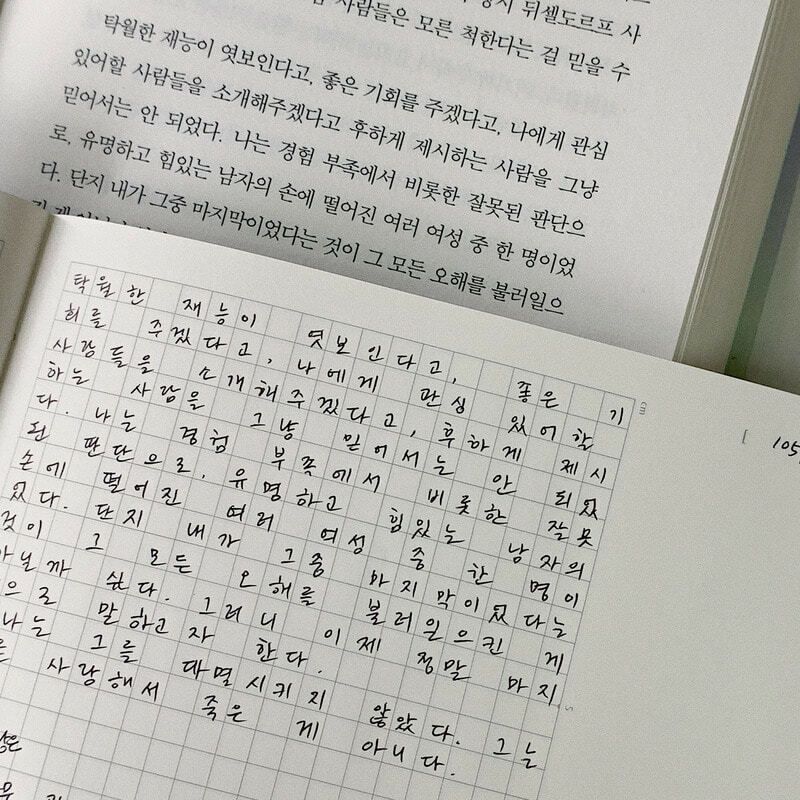 뒤셀도르프 사
사람들은 모른 척한다는 걸 믿을 수
탁월한 재능이 엿보인다고, 좋은 기회를 주겠다고, 나에게 관심
있어할 사람들을 소개해주겠다고 후하게 제시하는 사람을 그냥
믿어서는 안 되었다. 나는 경험 부족에서 비롯한 잘못된 판단으
로, 유명하고 힘있는 남자의 손에 떨어진 여러 여성 중 한 명이었
다. 단지 내가 그중 마지막이었다는 것이 그 모든 오해를 불러일으
탁월한 재능이 엿보인다고, 좋은 기
회를 주겠다고, 나에게 관심 있어할
사람들을 소개해주겠다고, 후하게 제시
하는 사람을 그냥 믿어서는 안 되었
다. 나는 경험 부족에서 비롯한 잘못
된 판단으로, 유명하고 힘있는 남자의
손에 떨어진 여러 여성 중 한 명이
었다. 단지 내가 그중 마지막이었다는
것이 그 모든 오해를 불러일으킨 게
아닐까 싶다. 그러니 이제 정말 마지
으로 말하고자 한다.
나는 그를 대면시키지 않았다. 그는
사랑해서 죽은 게 아니다.
[ 105
cm
5